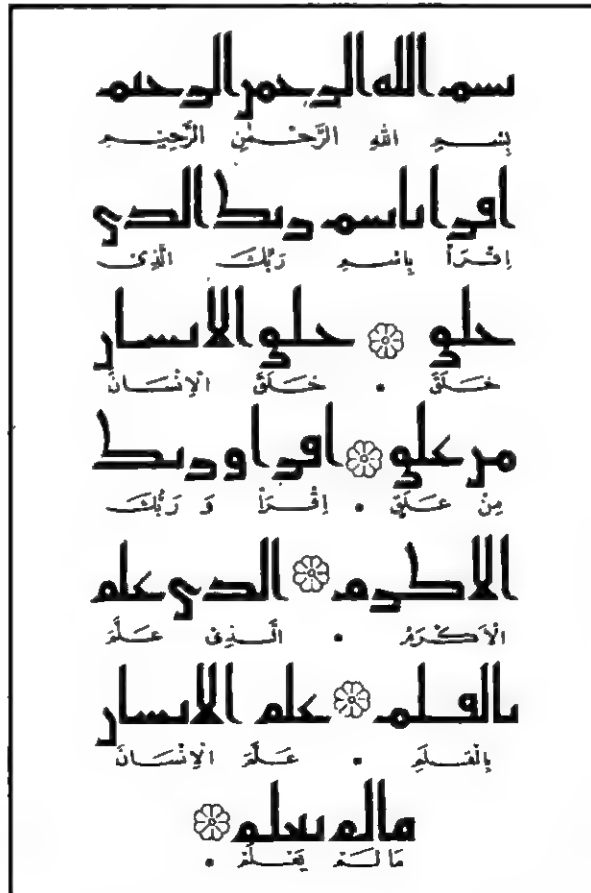 بسم الله الرحمن الرحيم
بِسْمِ اللهِ الرَّحْمٰنِ الرَّحِيْمِ
اقرا باسم ربك الذي
اِقْرَأْ بِاسْمِ رَبِّكَ الَّذِى
خلق ۞ خلق الانسان
خَلَقَ • خَلَقَ الْاِنْسَانَ
من علق ۞ اقرا و ربك
مِنْ عَلَقٍ • اِقْرَأْ وَ رَبُّكَ
الاكرم ۞ الذي علم
الْاَكْرَمُ • الَّذِى عَلَّمَ
بالقلم ۞ علم الانسان
بِالْقَلَمِ • عَلَّمَ الْاِنْسَانَ
ما لم يعلم ۞
مَا لَمْ يَعْلَمْ •